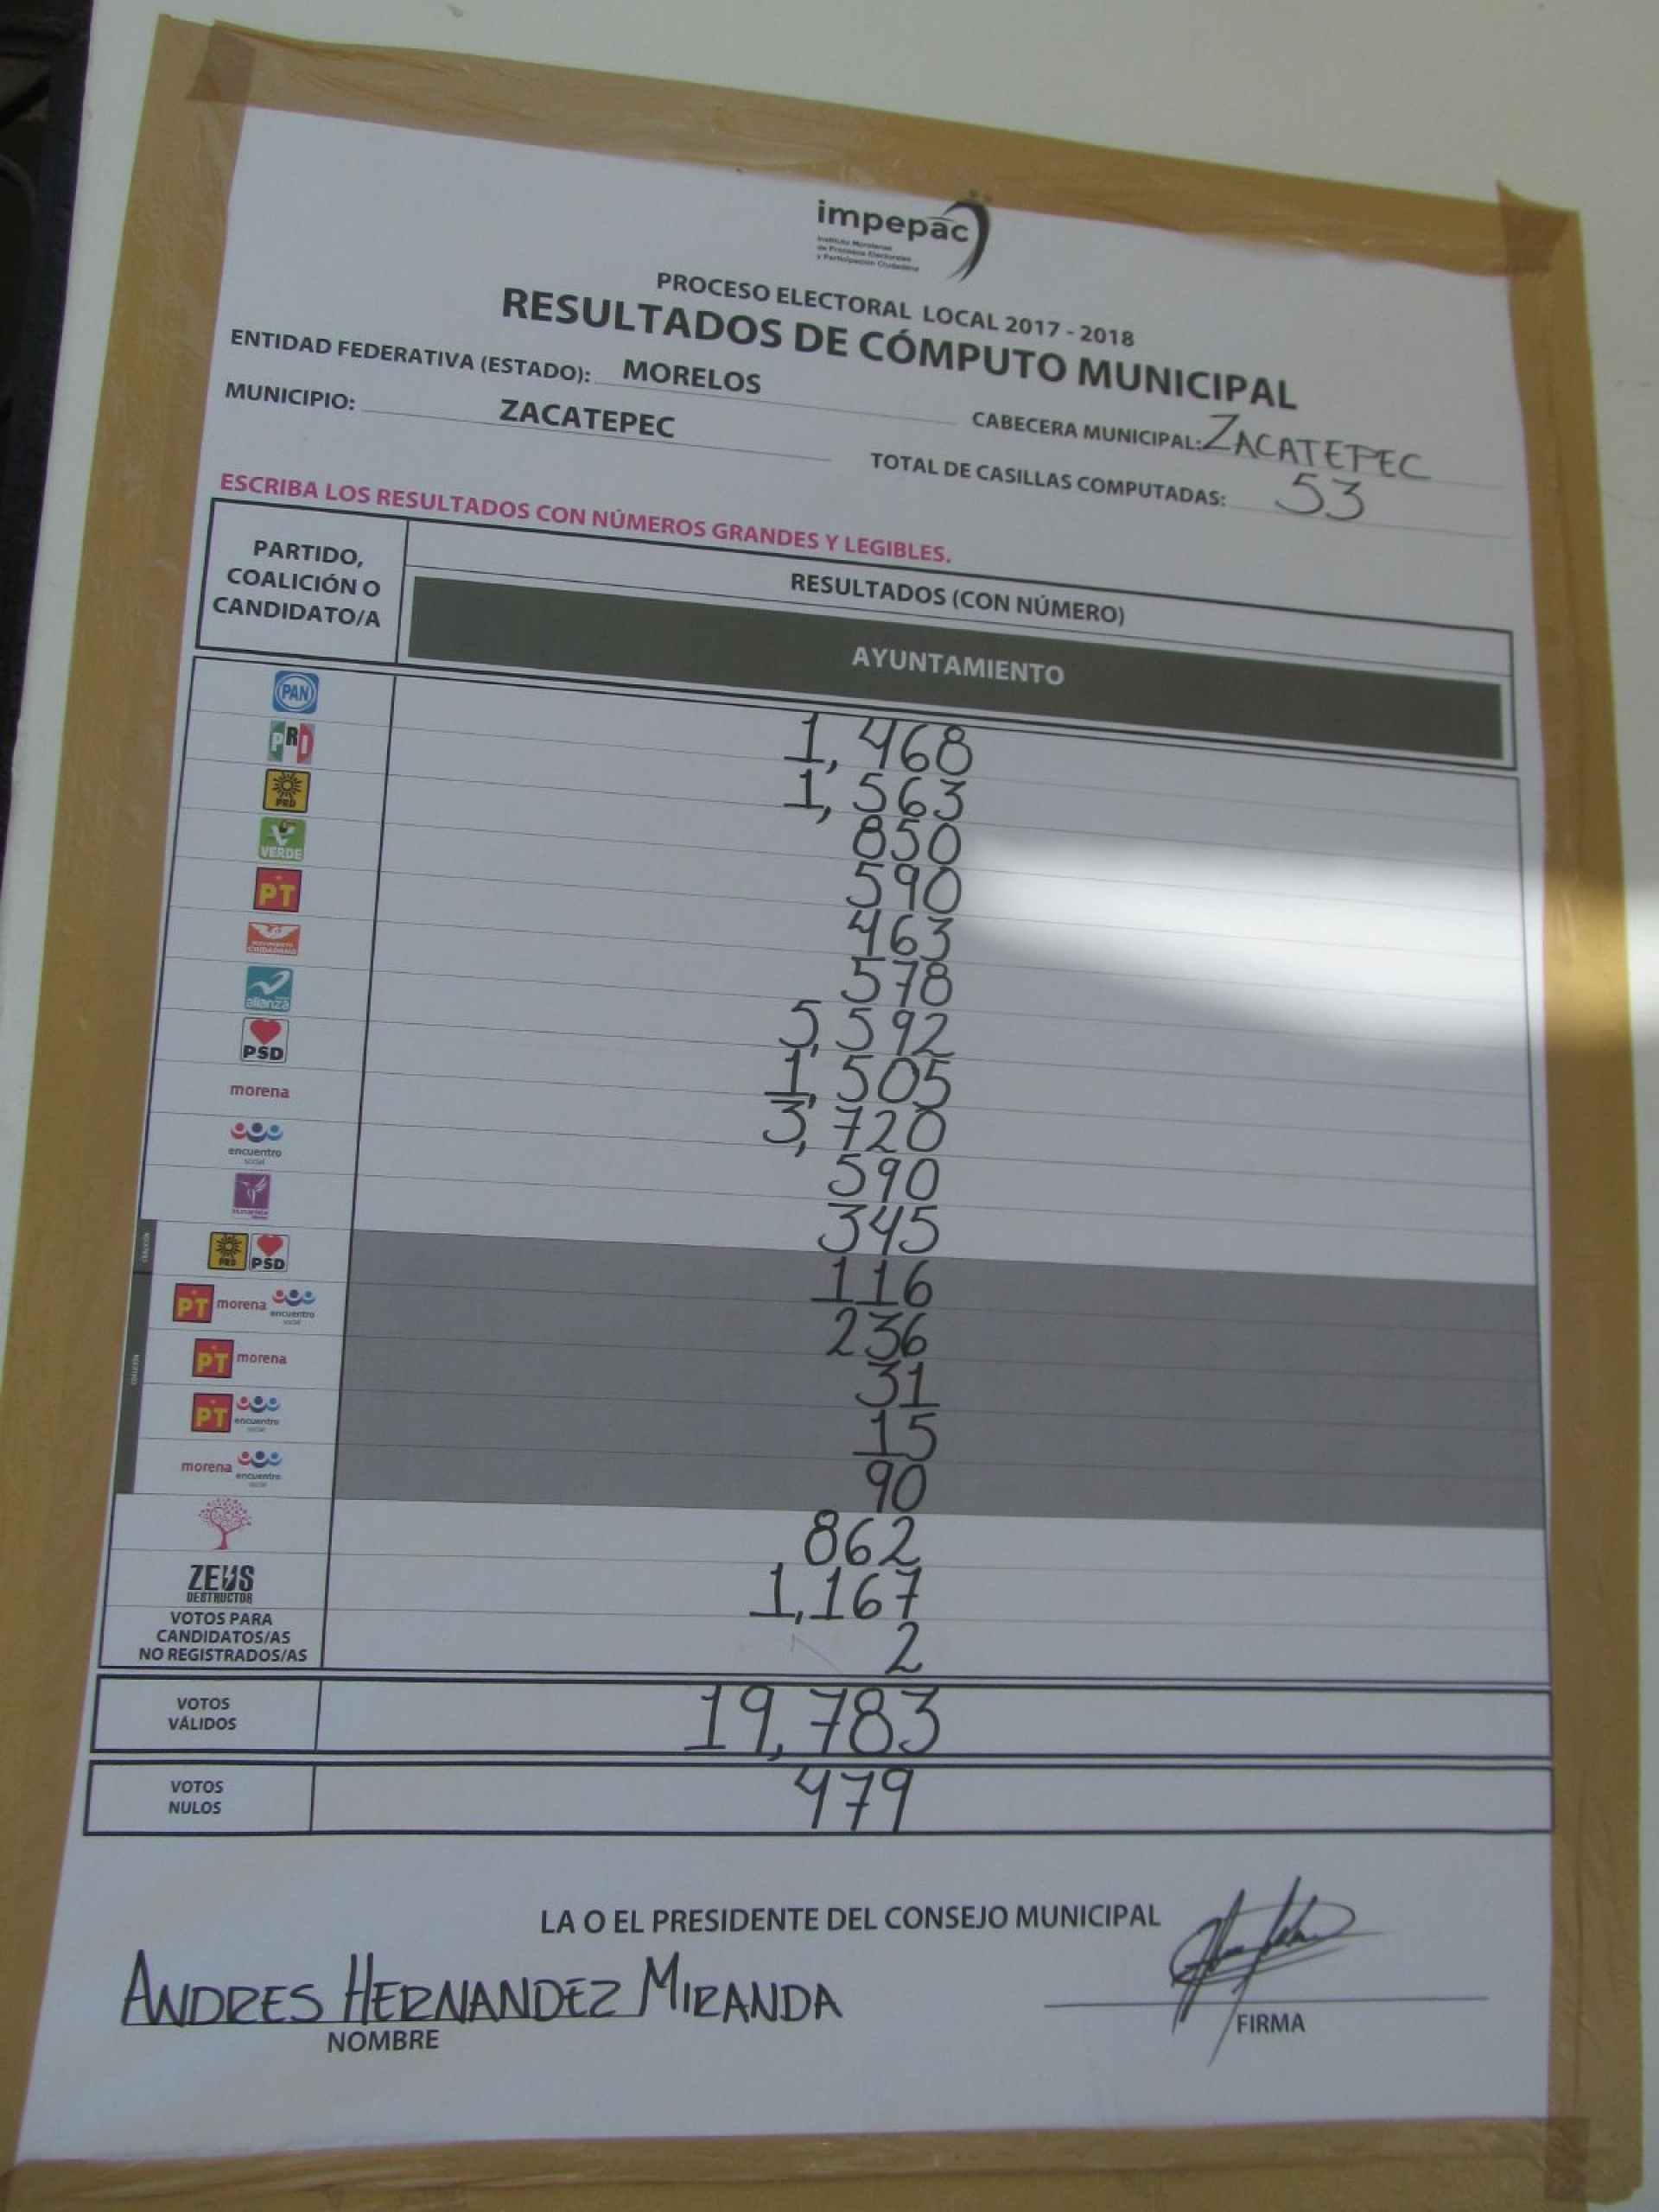 impepac
Instituto Morelense
de Procesos Electorales
y Participación Ciudadana
PROCESO ELECTORAL LOCAL 2017 - 2018
RESULTADOS DE CÓMPUTO MUNICIPAL
ENTIDAD FEDERATIVA (ESTADO): MORELOS
CABECERA MUNICIPAL: ZACATEPEC
MUNICIPIO: ZACATEPEC
TOTAL DE CASILLAS COMPUTADAS: 53
ESCRIBA LOS RESULTADOS CON NÚMEROS GRANDES Y LEGIBLES.
PARTIDO,
COALICIÓN O
CANDIDATO/A
RESULTADOS (CON NÚMERO)
AYUNTAMIENTO
PAN 1,468
PRI 1,563
PRD 850
VERDE 590
PT 463
MOVIMIENTO CIUDADANO 578
alianza 5,592
PSD 1,505
morena 3,720
encuentro social 590
Humanista 345
PRD PSD 116
PT morena encuentro social 236
PT morena 31
PT encuentro social 15
morena encuentro social 90
862
ZEUS DESTRUCTOR 1,167
VOTOS PARA
CANDIDATOS/AS
NO REGISTRADOS/AS 2
VOTOS
VÁLIDOS 19,783
VOTOS
NULOS 479
LA O EL PRESIDENTE DEL CONSEJO MUNICIPAL
ANDRES HERNANDEZ MIRANDA
NOMBRE
FIRMA